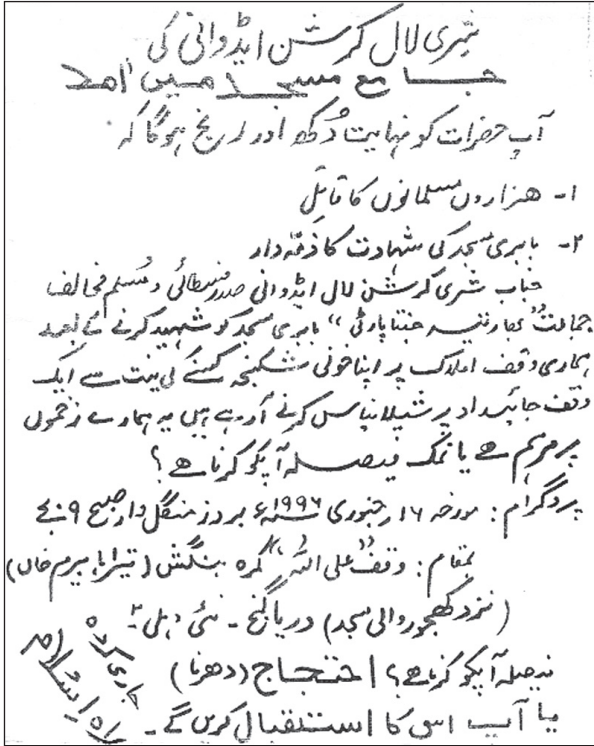 شری لال کرشن ایڈوانی کی
جامع مسجد میں آمد
آپ حضرات کو نہایت دُکھ اور رنج ہوگا کہ
۱- ھزاروں مسلمانوں کا قاتل
۲- بابری مسجد کی شہادت کا ذمّہ دار
جناب شری کرشن لال ایڈوانی صدر فسطائی و مُسلم مخالف
جماعت "بھارتیہ جنتا پارٹی" بابری مسجد کو شہید کرنے کے بعد
ہماری وقف املاک پر اپنا خونی شکنجہ کسنے کی نیت سے ایک
وقف جائیداد پر شیلانیاس کرنے آ رہے ہیں یہ ہمارے زخموں
پر مرہم ہے یا نمک فیصلہ آپکو کرنا ھے؟
پروگرام: مورخہ ۱۶ر جنوری ۱۹۹۶ء بروز منگلوار صبح ۹ بجے
بمقام: وقف "علی اللہ" کمرہ بنگش (تیراہا بیرم خاں)
(نزد کھجور والی مسجد) دریا گنج - نئی دہلی-۲
فیصلہ آپکو کرنا ھے؟ احتجاج (دھرنا)
یا آپ اسی کا استقبال کریں گے-
جاری کردہ
راہ اسلام